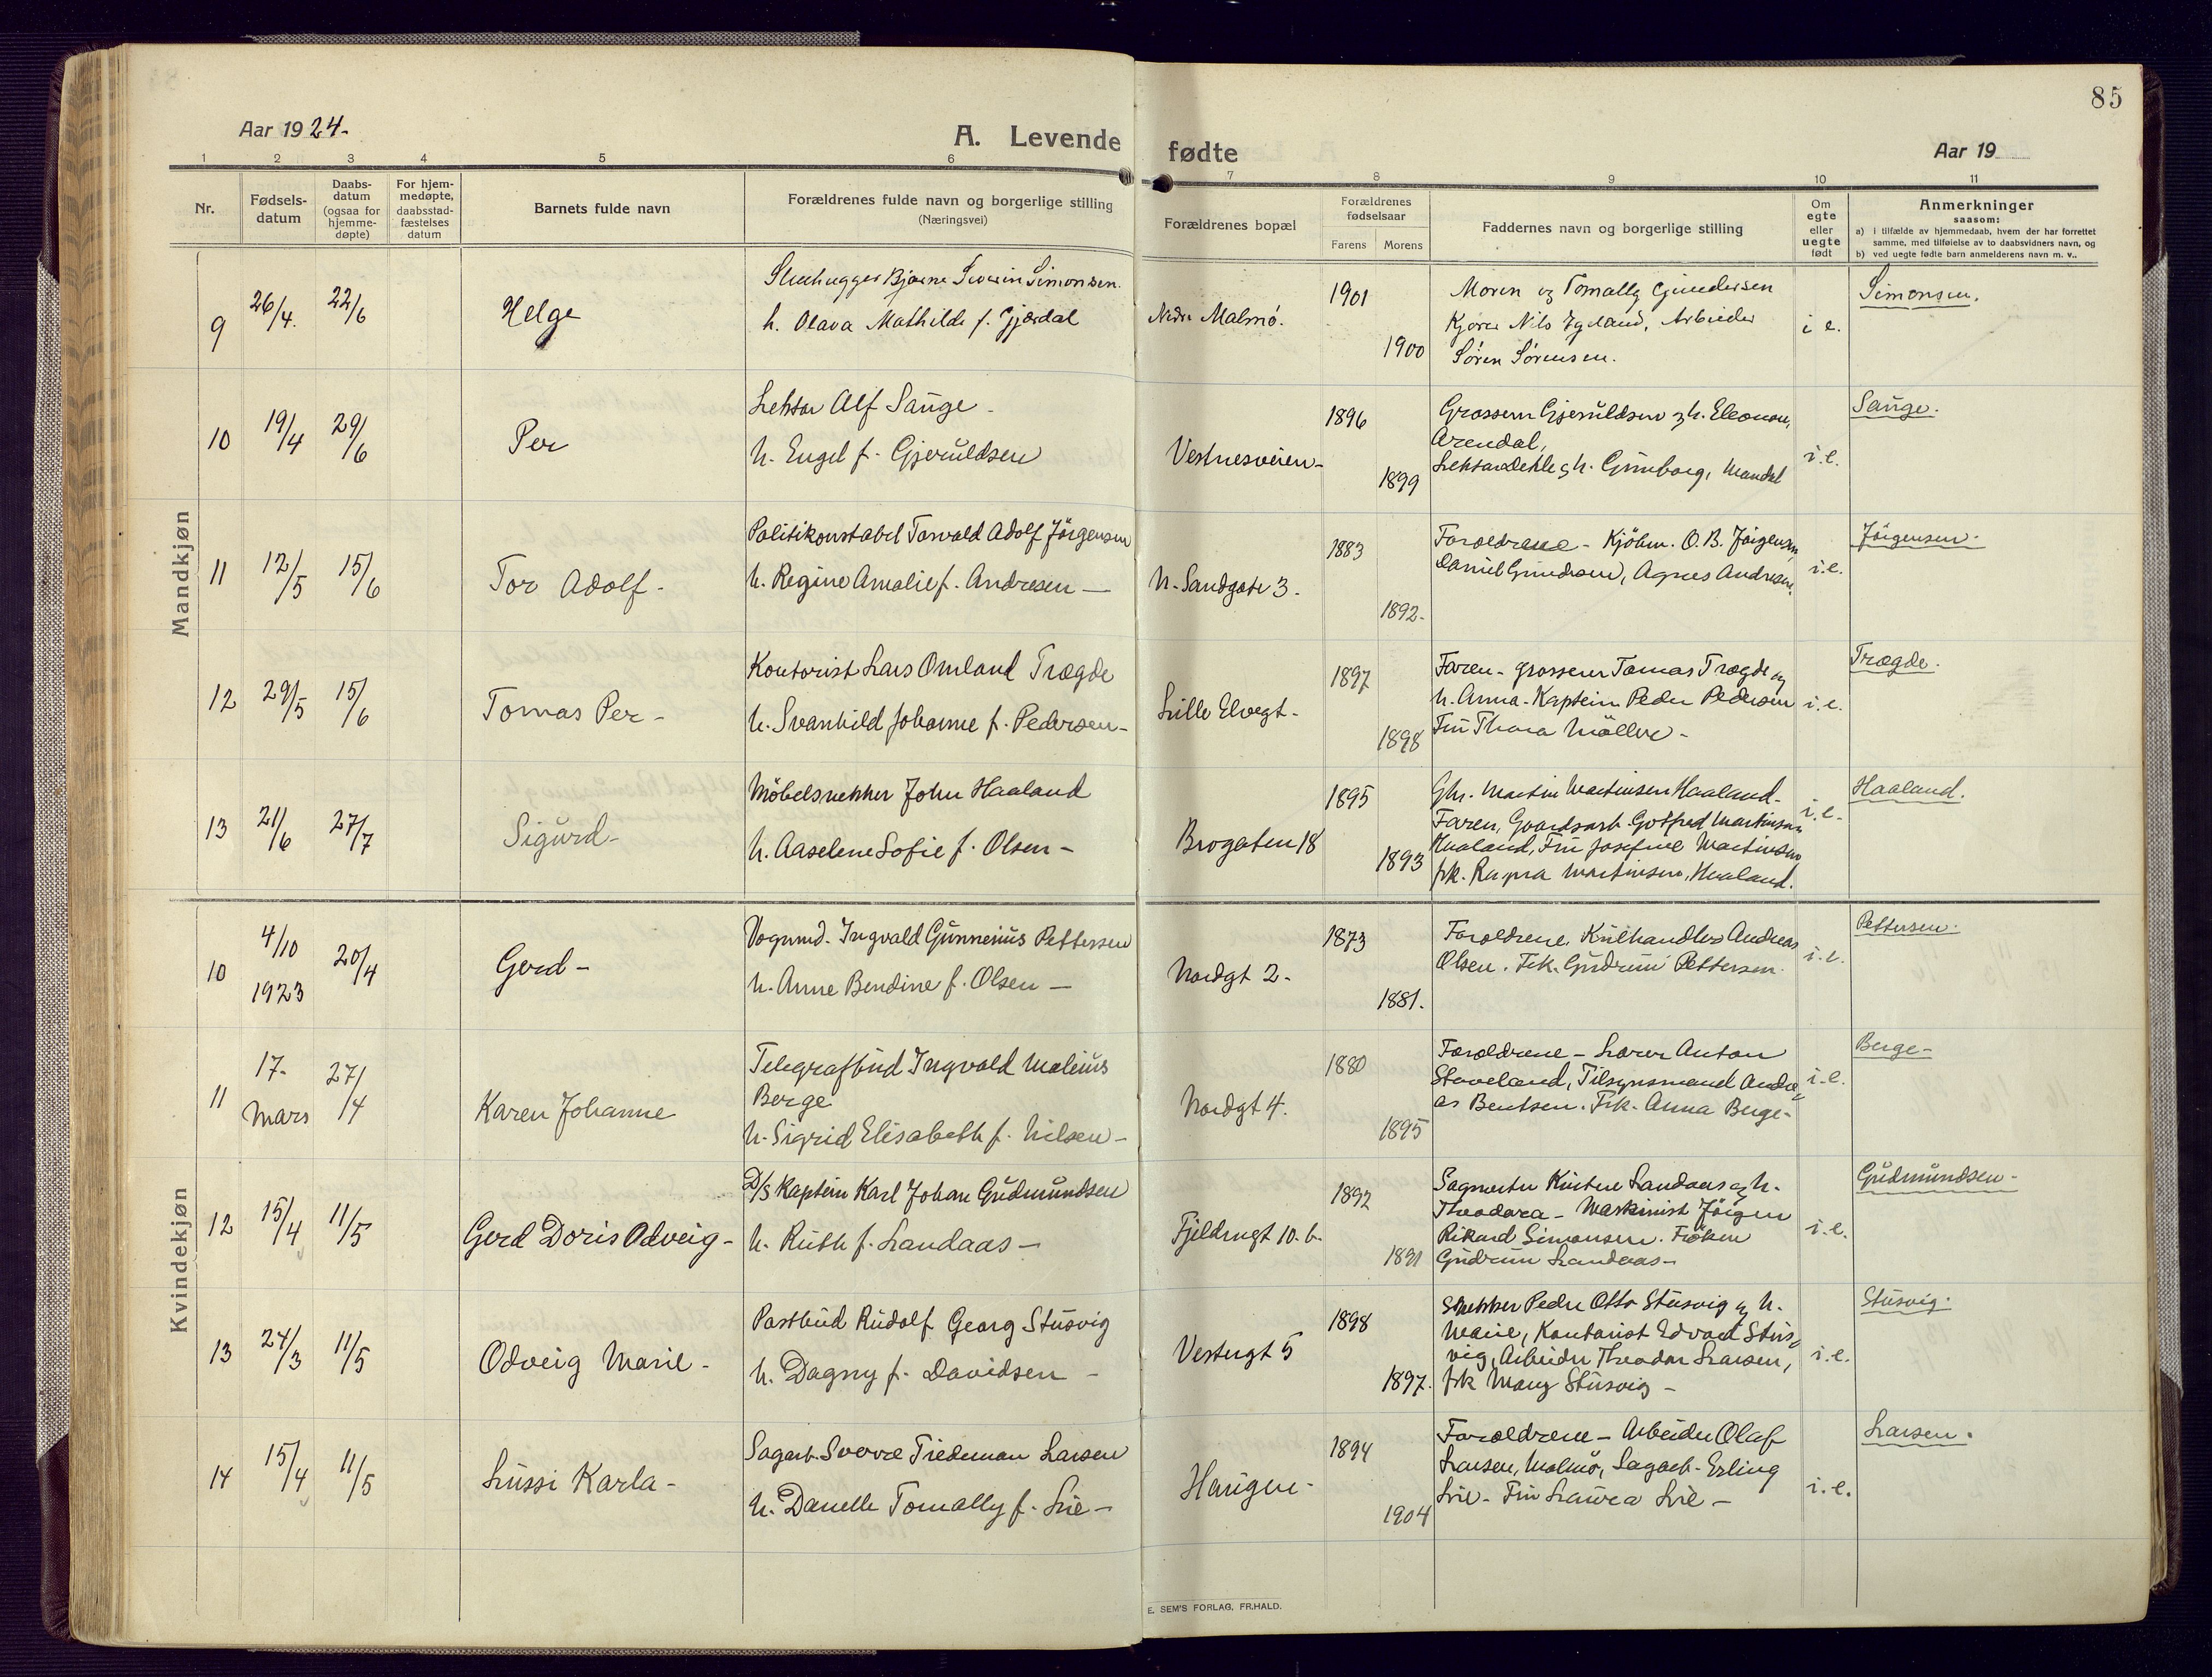 85
Aar 1924-
A. Levende
fødte
Aar 19
1 2 3 4 5 6 7 8 9 10 11
Nr.
Fødsels-
datum
Daabs-
datum
(ogsaa for
hjemme-
døpte)
For hjem-
medøpte,
daabsstad-
fæstelses
datum
Barnets fulde navn
Forældrenes fulde navn og borgerlige stilling
(Næringsvei)
Forældrenes bopæl
Forældrenes
fødselsaar
Farens Morens
Faddernes navn og borgerlige stilling
Om
egte
eller
uegte
født
Anmerkninger
saasom:
a) i tilfælde av hjemmedaab, hvem der har forrettet
samme, med tilføielse av to daabsvidners navn, og
b) ved uegte fødte barn anmelderens navn m. v..
Mandkjøn
9 26/4. 22/6 Helge
Bjarne Severin Simonsen.
h. Olava Mathilde f. Gjærdal
Nedre Malmø.
1901
1900
Moren og Tomally Gundersen
Nils Egeland, Arbeider
Søren Sørensen.
i e.
Simonsen.
10 19/4 29/6 Per
Lektor Alf Sauge -
h. Engel f. Gjeruldsen
Vestnesveien -
1896
1899
Grosserer Gjeruldsen og h. Eleonore,
Arendal,
Lektor Dehle og h. Gunborg, Mandal
i.e.
Sauge.
11 12/5 15/6 Tor Adolf -
Politikonstabel Torvald Adolf Jörgensen
h. Regine Amalie f. Andresen -
N. Sandgate 3.
1883
1892.
Foreldrene - Kjöbm. O.B. Jörgensen,
Daniel Gundersen, Agnes Andresen.
i.e.
Jörgensen.
12 29/5 15/6 Tomas Per -
Kontorist Lars Omland Trægde
h. Svanhild Johanne f. Pedersen -
Lille Elvegt -
1897
1898
Faren - grosserer Tomas Trægde og
h. Anna - Kaptein Peder Pedersen
Fru Thora Möller -
i.e.
Trægde.
13 21/6 27/7 Sigurd -
Möbelsnekker John Haaland
h. Aaselene Sofie f. Olsen -
Brogaten 18
1895
1893
Ghr. Martin Martinsen Haaland -
Faren, Gaardsarb. Gotfred Martinsen
Haaland, Fru Josefine Martinsen
frk. Ragna Martinsen, Haaland.
i.e.
Haaland.
Kvindekjøn
10 4/10 1923 20/4 Gerd -
Vognmd. Ingvald Gunnerius Pettersen
h. Anne Bendine f. Olsen -
Nordgt 2 -
1873
1881.
Foreldrene, Kulhandler Andreas
Olsen. Frk. Gudrun Pettersen.
i.e.
Pettersen.
11 17. Mars 27/4 Karen Johanne
Telegrafbud Ingvald Malenius
Berge
h. Sigrid Elisabeth f. Nilsen -
Nordgt 4.
1880
1895
Foreldrene - Lærer Anton
Staveland, Tilsynsmand Andre-
as Bentsen. Frk. Anna Berge -
i.e.
Berge -
12 15/4 11/5 Gerd Doris Odveig -
D/S Kaptein Karl Johan Gudmundsen
h. Ruth f. Landaas -
Fjeldrugt 10. b.
1892
1891
Sagmester Landaas og h.
Theodora - Maskinist Jörgen
Rikard Simonsen. Fröken
Gudrun Landaas -
i.e.
Gudmundsen -
13 24/3 11/5 Odveig Marie -
Postbud Rudolf Georg Stusvig
h. Dagny f. Davidsen -
Vestergt 5
1898
1897.
Snekker Peder Otto Stusvig og h.
Marie, Kontorist Edvard Stus-
vig, Arbeider Theodor Larsen,
frk Mary Stusvig -
i.e.
Stusvig.
14 15/4 11/5 Lussi Karla -
Sagarb. Sverre Tiedeman Larsen
h. Danelle Tomally f. Lie -
Haugen -
1894
1904
Foreldrene - Arbeider Olaf
Larsen, Malmø, Sagarb. Erling
Lie - Fru Laura Lie -
i.e.
Larsen.
E. SEM'S FORLAG, FR.HALD.